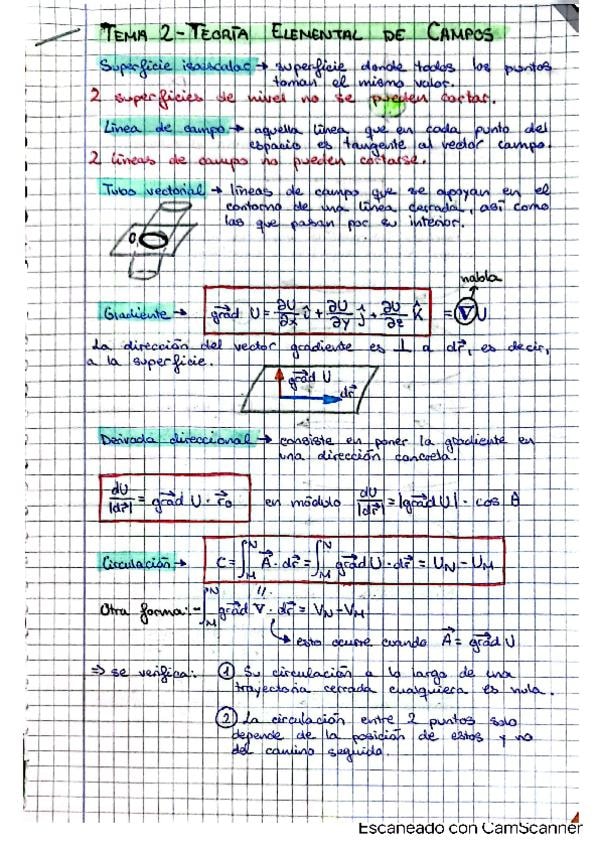 TEMA 2 - TEORÍA ELEMENTAL DE CAMPOS
Superficie isoescalar → superficie donde todos los puntos
toman el mismo valor.
2 superficies de nivel no se pueden cortar.
Línea de campo → aquella línea que en cada punto del
espacio es tangente al vector campo.
2 líneas de campo no pueden cortarse.
Tubo vectorial → líneas de campo que se apoyan en el
contorno de una línea cerrada, así como
las que pasan por su interior.
nabla
Gradiente → grad U = ∂U/∂x î + ∂U/∂y ĵ + ∂U/∂z k̂ = ∇U
La dirección del vector gradiente es ⊥ a dr, es decir,
a la superficie.
grad U
dr
Derivada direccional → consiste en poner la gradiente en
una dirección concreta.
dU/|dr| = grad U · r₀ en módulo dU/|dr| = |grad U| · cos θ
Circulación → C = ∫_M^N A · dr = ∫_M^N grad U · dr = U_N - U_M
Otra forma:- ∫_M^N grad V · dr = V_N - V_M
↳ esto ocurre cuando A = grad U
⇒ se verifica: ① Su circulación a lo largo de una
trayectoria cerrada cualquiera es nula.
② La circulación entre 2 puntos solo
depende de la posición de estos y no
del camino seguido.
Escaneado con CamScanner